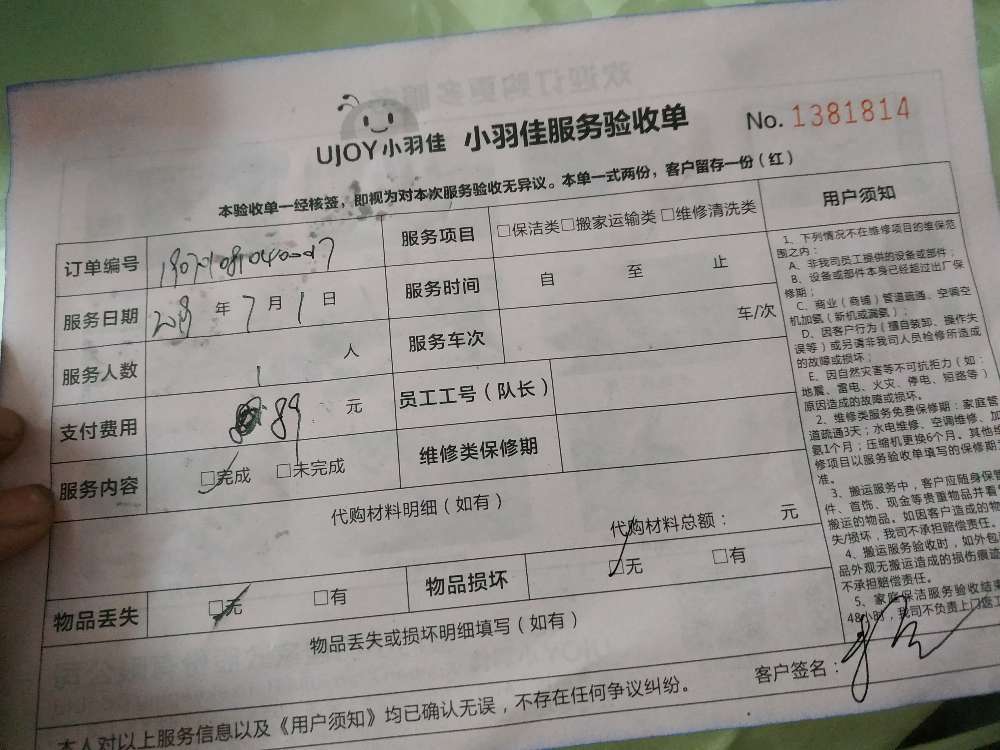 UJOY小羽佳 小羽佳服务验收单 No. 1381814
本验收单一经核签，即视为对本次服务验收无异议。本单一式两份，客户留存一份（红）
订单编号 服务项目 □保洁类□搬家运输类□维修清洗类
服务日期 2019 年 7 月 1 日 服务时间 自 至 止
服务人数 1 人 服务车次 车/次
支付费用 89 元 员工工号（队长）
服务内容 □完成 □未完成 维修类保修期
代购材料明细（如有）
代购材料总额： 元
物品丢失 □无 □有 物品损坏 □无 □有
物品丢失或损坏明细填写（如有）
客户签名：
本人对以上服务信息以及《用户须知》均已确认无误，不存在任何争议纠纷。
用户须知
1、下列情况不在维修项目的维保范
围之内：
A、非我司员工提供的设备或部件；
B、设备或部件本身已经超过出厂保
修期；
C、商业（商铺）管道疏通、空调空
机加氨（新机或漏氨）；
D、因客户行为（擅自装卸、操作失
误等）或另请非我司人员检修所造成
的故障或损坏；
E、因自然灾害等不可抗拒力（如：
地震、雷电、火灾、停电、短路等）
原因造成的故障或损坏。
2、维修类服务免费保修期：家庭管
道疏通3天；水电维修、空调维修、加
氨1个月；压缩机更换6个月。其他维
修项目以服务验收单填写的保修期
准。
3、搬运服务中，客户应随身保管
件、首饰、现金等贵重物品并看
搬运的物品。如因客户造成的物
失/损坏，我司不承担赔偿责任。
4、搬运服务验收时，如外包
品外观无搬运造成的损伤痕迹
不承担赔偿责任。
5、家庭保洁服务验收结束
48小时，我司不负责上门返工